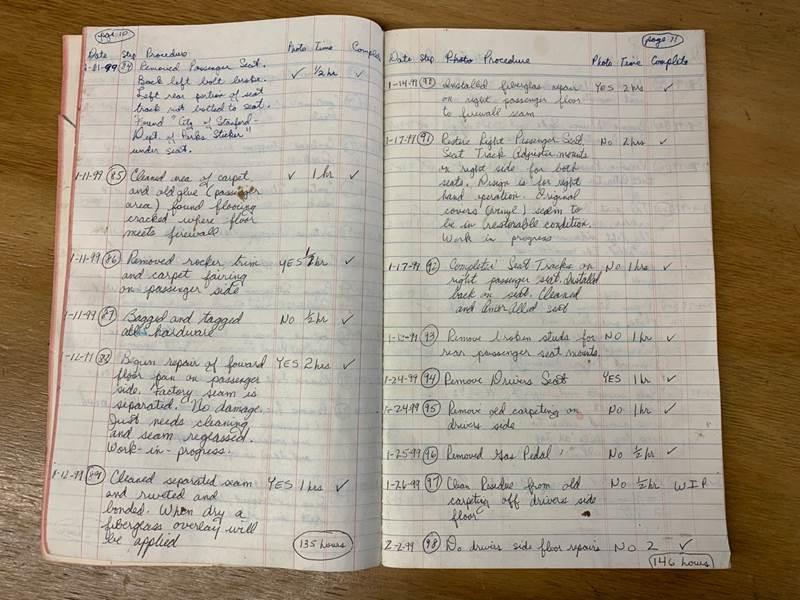 page 10
Date Step Procedure Photo Time Complete
1-01-99 84 Removed Passenger Seat.
Back left bolt broke. ✓ 1/2 hr ✓
Left rear portion of seat
track not bolted to seat.
Found "City of Stanford-
Dept. of Parks Sticker"
under seat.
1-11-99 85 Cleaned area of carpet ✓ 1 hr ✓
and old glue (passenger
area) found flooring
cracked where floor
meets firewall
1-11-99 86 Removed rocker trim YES 1/2 hr ✓
and carpet fairing
on passenger side
1-11-99 87 Bagged and tagged No 1/2 hr ✓
all hardware
1-12-99 88 Begun repair of foward YES 2 hrs ✓
floor pan on passenger
side. Factory seam is
separated. No damage.
Just needs cleaning
and seam reglassed.
Work in-progress.
1-12-99 89 Cleaned separated seam YES 1 hrs ✓
and riveted and
bonded. When dry a
fiberglass overlay will
be applied
135 hours
page 11
Date Step Photo Procedure Photo Time Complete
1-14-99 90 Installed fiberglas repair YES 2 hrs ✓
on right passenger floor
to firewall seam
1-17-99 91 Restore Right Passenger Seat. No 2 hrs ✓
Seat Track Adjuster mounts
on right side for both
seats. Design is for right
hand operation. Original
covers (vinyl) seem to
be in (restorable condition.
Work in progress
1-17-99 92 Completed Seat Tracks on No 1 hrs ✓
right passenger seat. Installed
back on seat. Cleaned
and seat
93 Remove broken studs for No 1 hr ✓
rear passenger seat mounts.
1-24-99 94 Remove Drivers Seat YES 1 hr ✓
1-24-99 95 Remove old carpeting on No 1 hr ✓
drivers side
1-25-99 96 Removed Gas Pedal No 1/2 hr ✓
1-26-99 97 Clean Residue from old No 1/2 hr WIP
carpeting off drivers side
floor
2-2-99 98 Do drivers side floor repairs No 2 ✓
146 hours